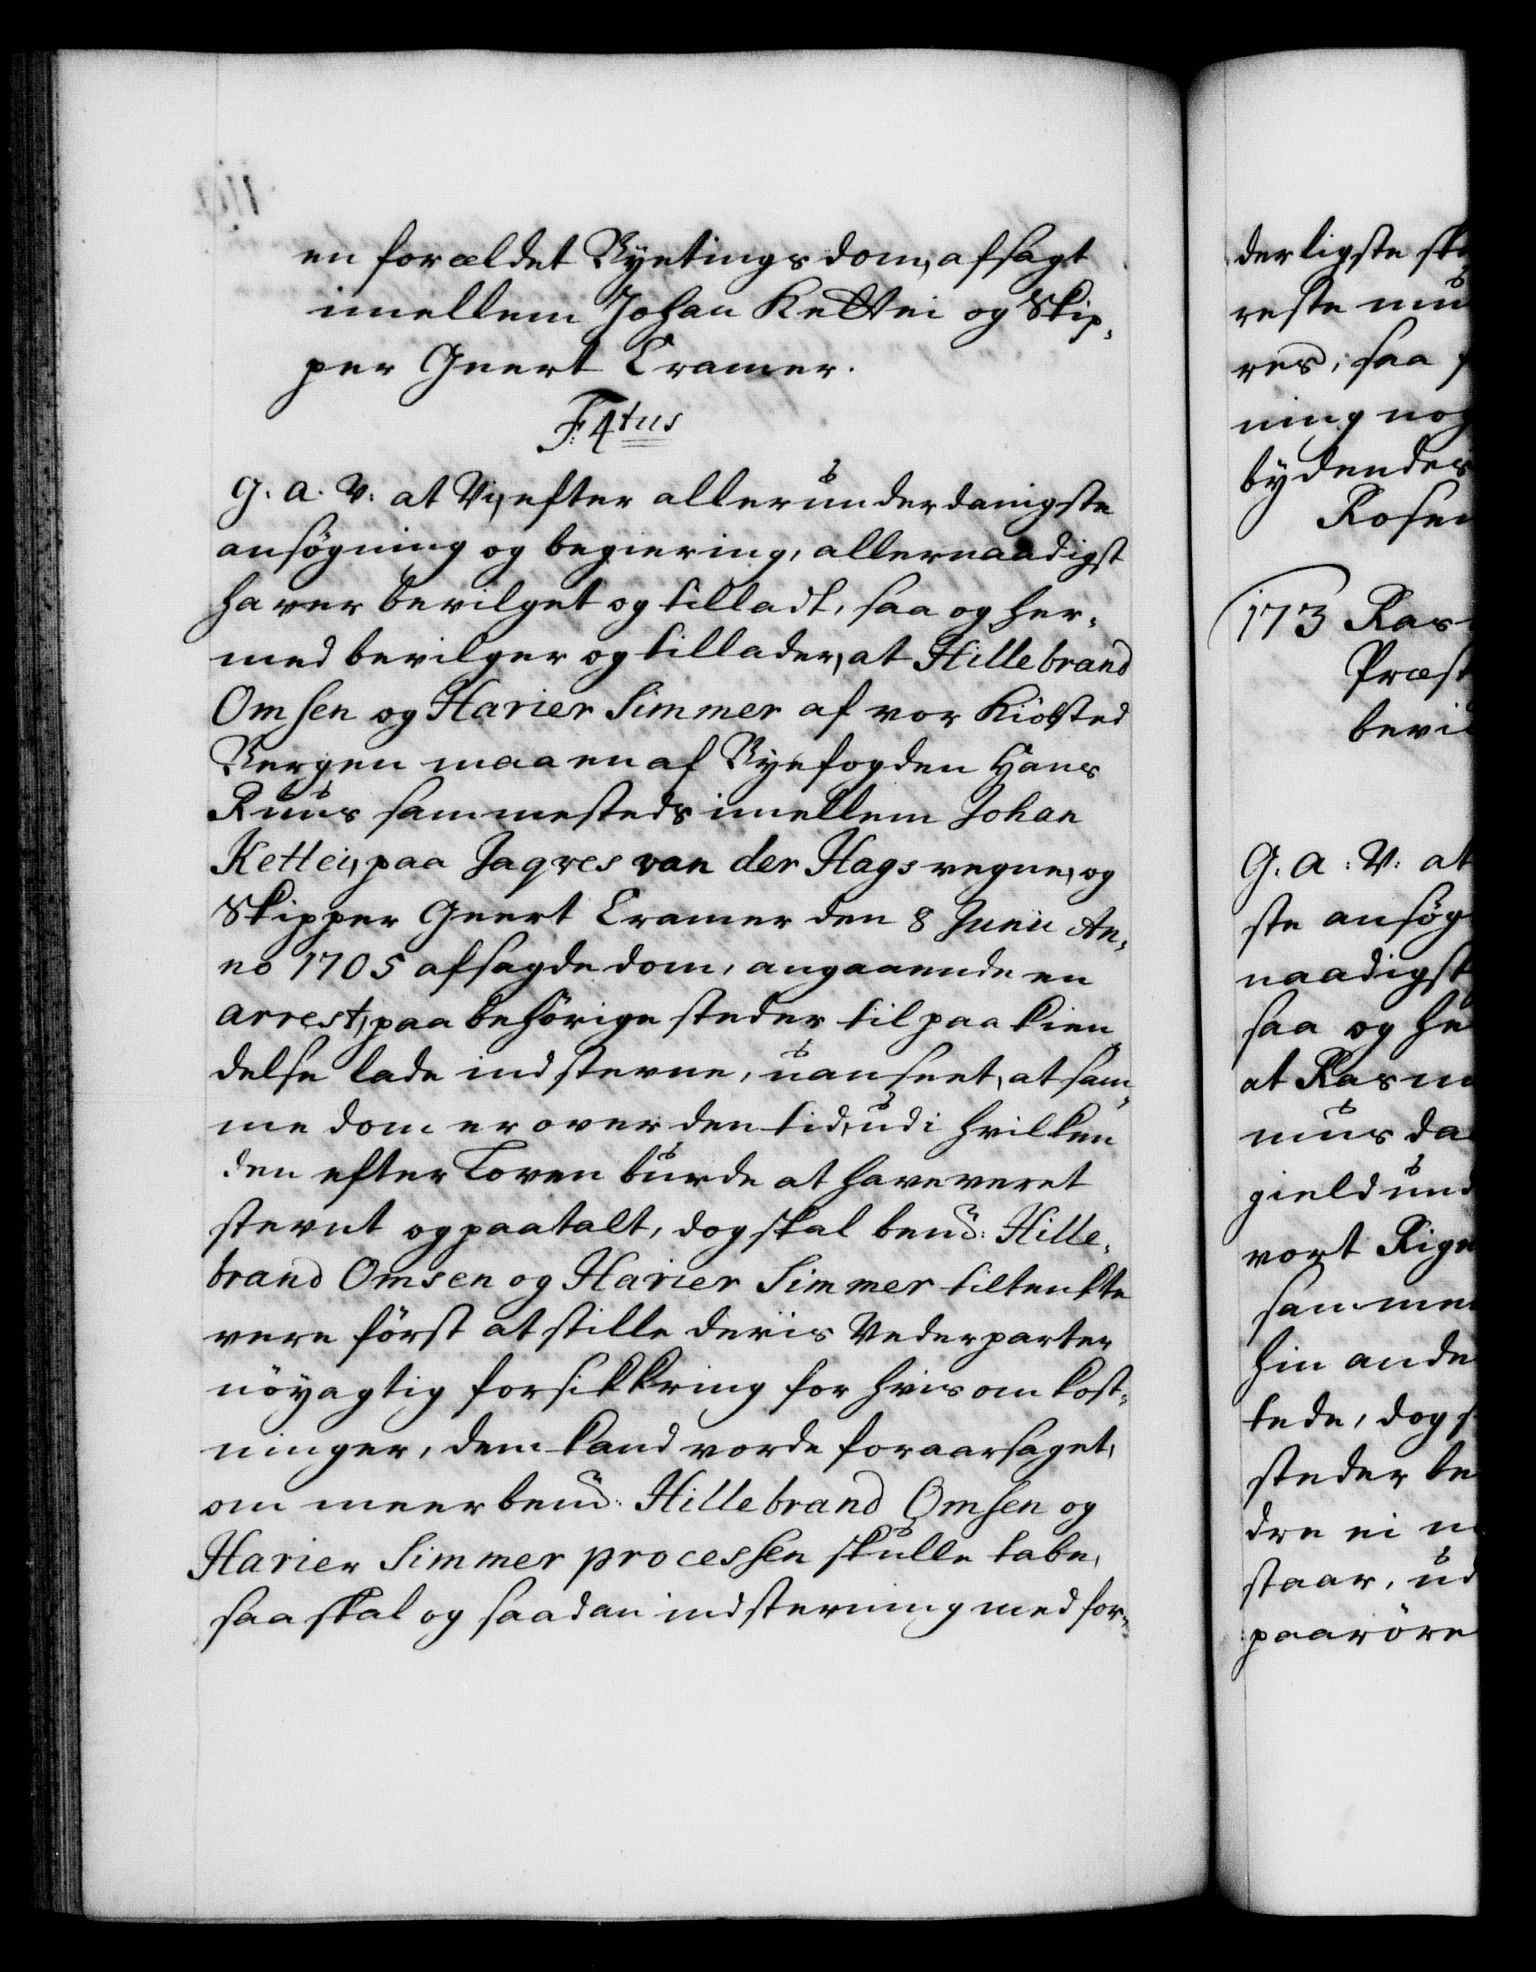 en forældet Byetings dom, afsagt
imellem Johan Kettei og Skip-
per Geert Cramer.
F: 4tus
G. A. V: at Vi, efter allerunderdanigste
ansøgning og begiering, allernaadigst
haver bevilget og tilladt, saa og her-
med bevilger og tillader, at Hillebrand
Omsen og Harier Simmer af vor Kiøbsted
Bergen maa en af Byefogden Hans
Ruus sammesteds imellem Johan
Kettei, paa Jaqves van der Hags vegne, og
Skipper Geert Cramer den 8 Junii An-
no 1705 afsagde dom, angaaende en
arrest, paa behörige steder til paakien-
delse lade indstevne, uanseet, at sam-
me dom er over den tid, udi hvilken
den efter Loven burde at have veret
stevnt og paatalt, dog skal bemd: Hille-
brand Omsen og Harier Simmer tiltenkte
vere först at stille deris Vederparter
nöyagtig forsikkring for hvis omkost-
ninger, dem kand vorde foraarsaget,
om meerbemd: Hillebrand Omsen og
Harier Simmer processen skulle tabe,
saa skal og saadan indstevning med for-
derligste
reste
res; saa
ning
bydendes
173
G. A: V: at
ste ansøg
naadigst
saa og he
at Rasm
mus da
gield und
vort Rige
sammen
hin ande
tede, dog
steder be
dre ei
staar, ud
paaröre